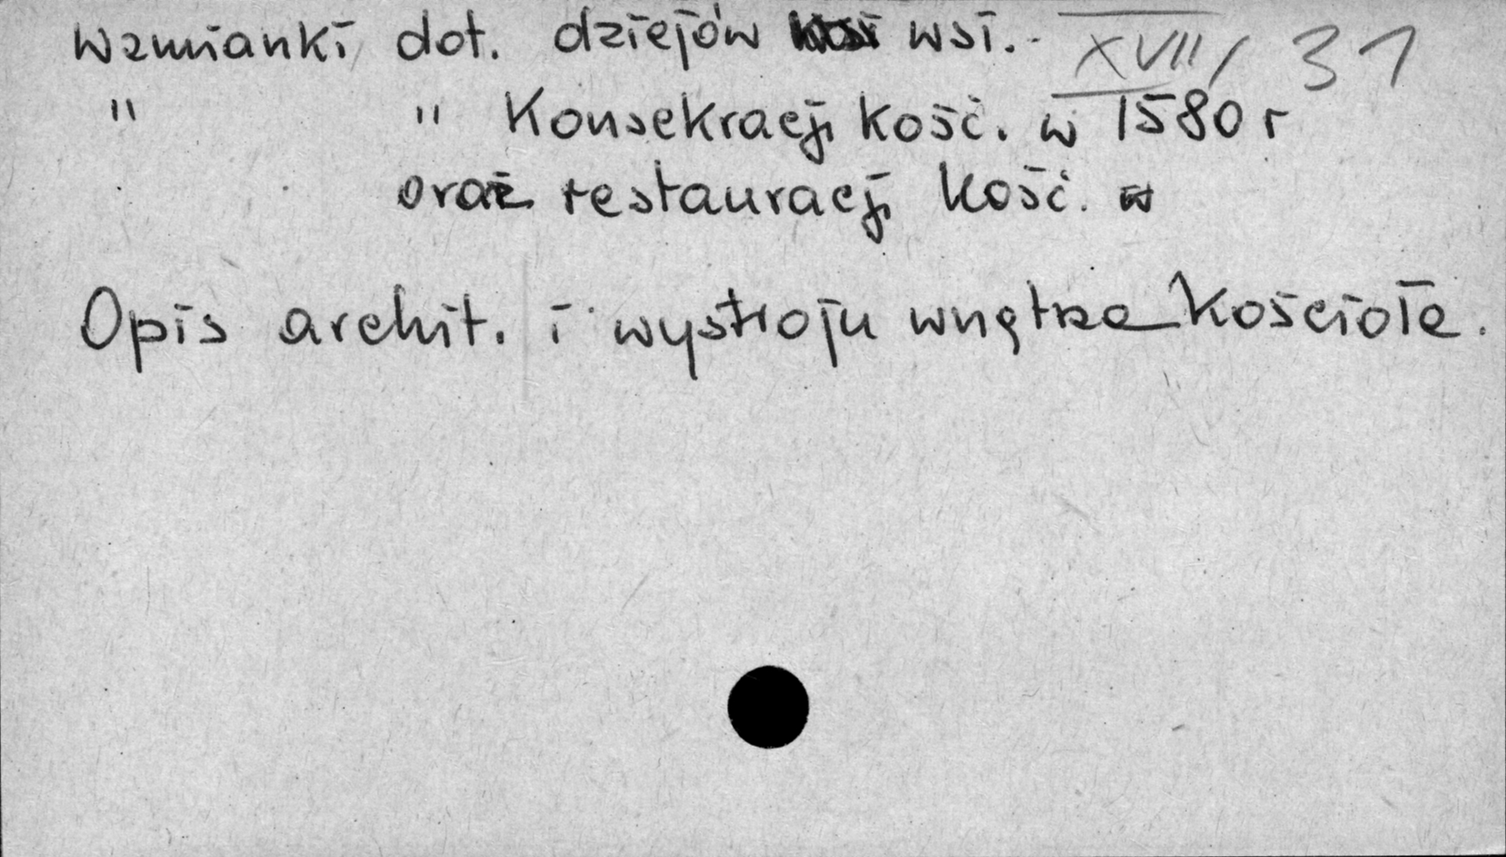 Wzmianki dot. dziejów wsi. XVII/31
" " Konsekracji kość. w 1580 r
oraz restauracji kość. w
Opis archit. i wystroju wnętrza kościoła.